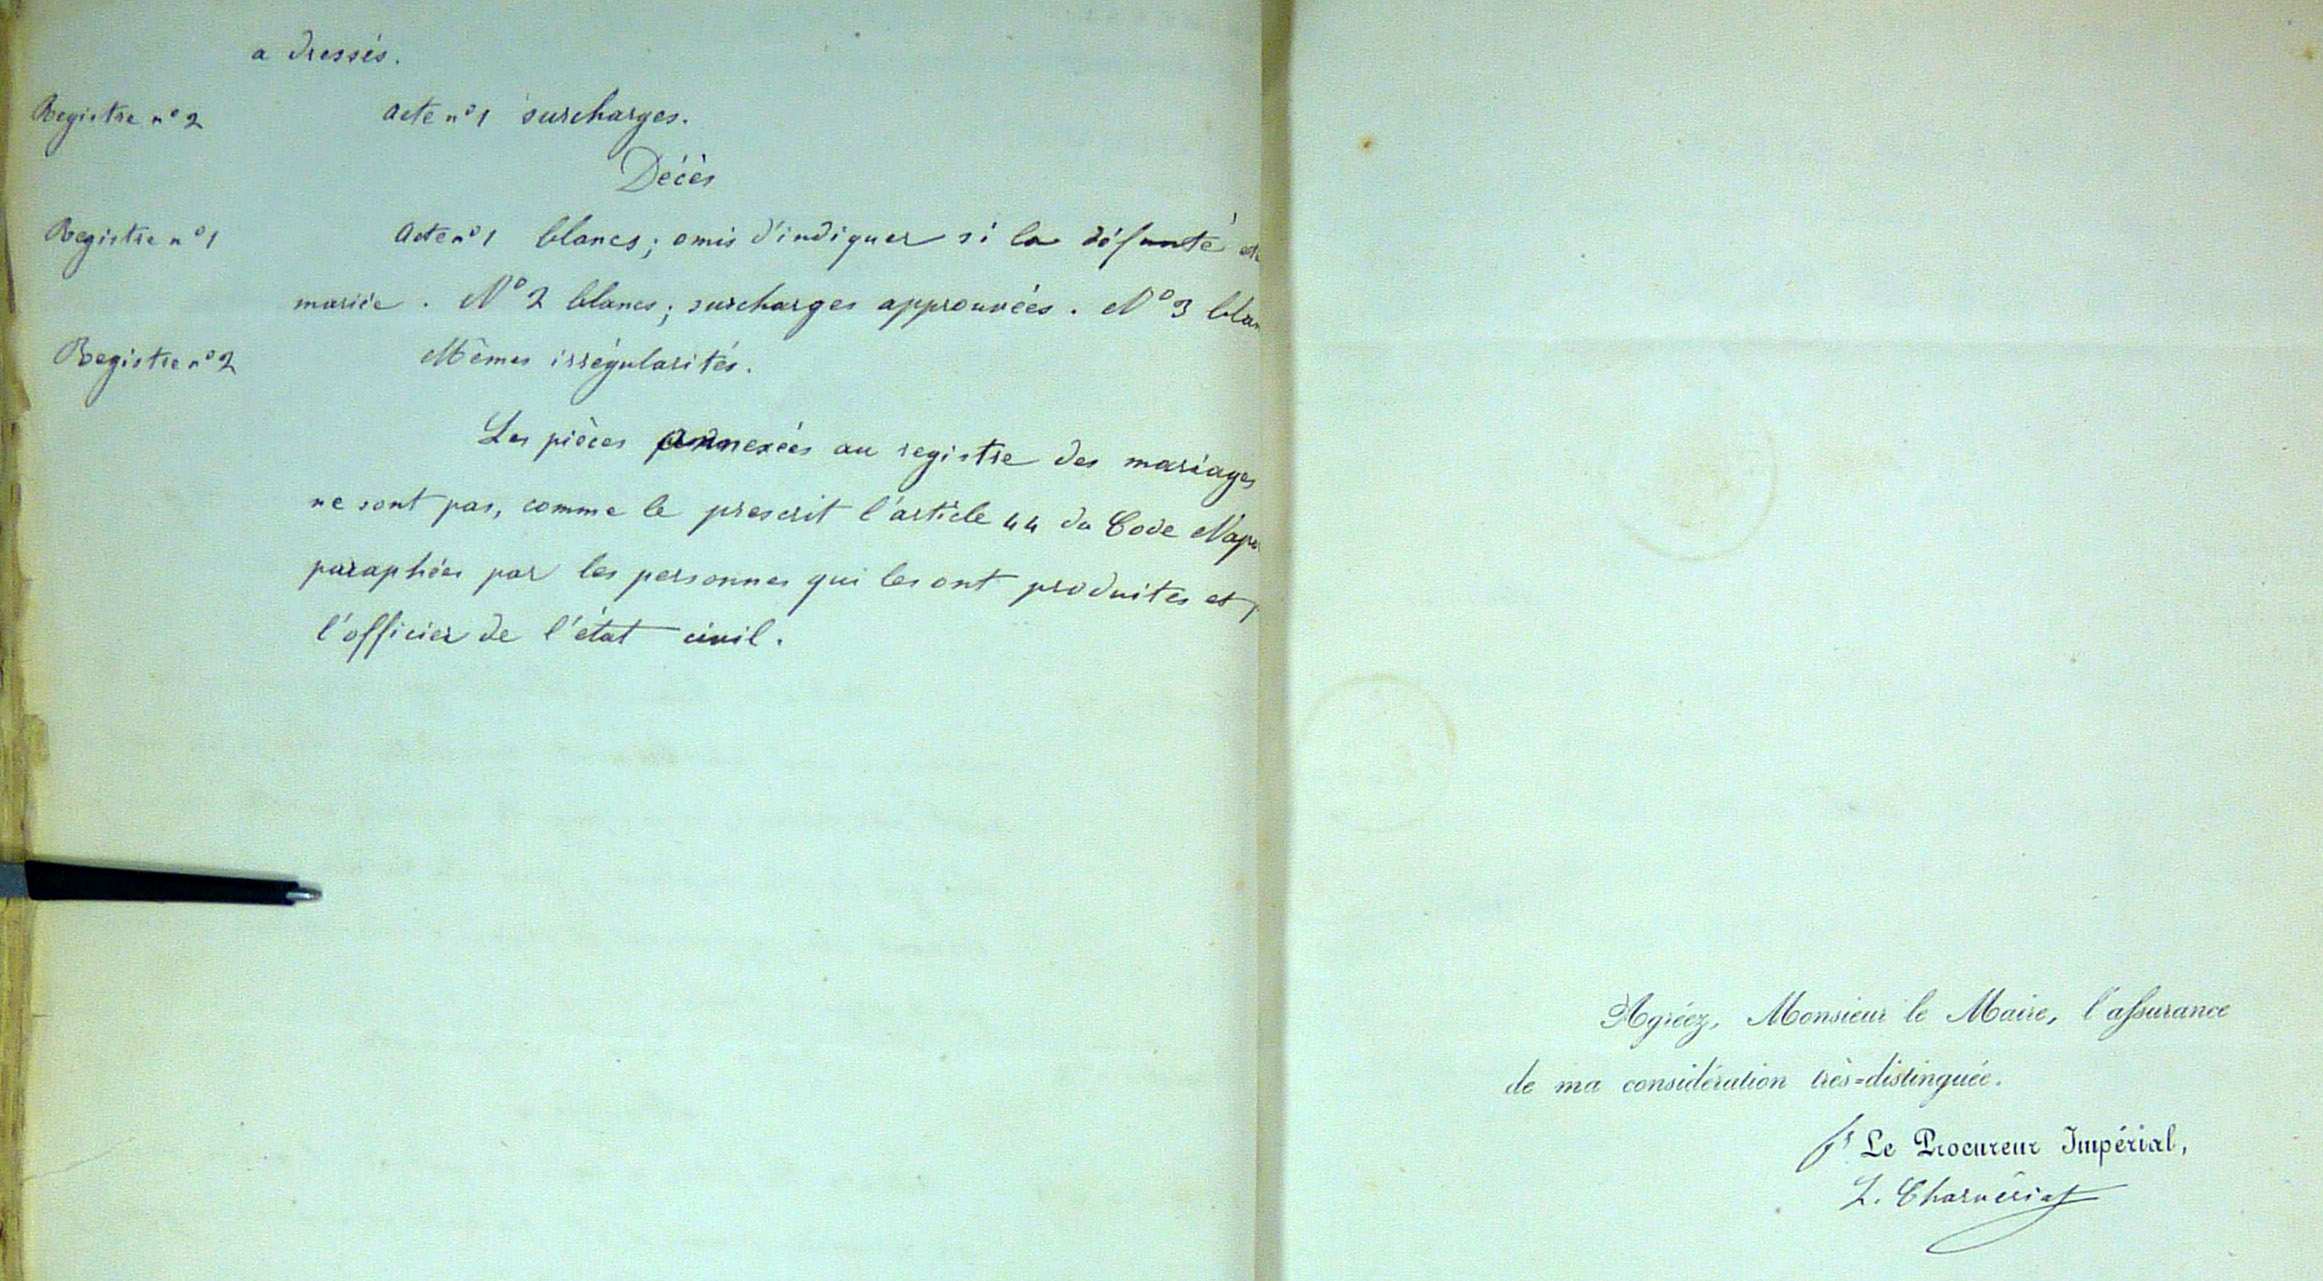 a dressés.
Registre n° 2 acte n° 1 surcharges.
Décès
Registre n° 1 acte n° 1 blancs; omis d'indiquer si la défunte
mariée. N° 2 blancs; surcharges approuvées. N° 3 blan
Registre n° 2 Mêmes irrégularités.
Les pièces annexées au registre des mariages
ne sont pas, comme le prescrit l'article 44 du Code Napo
paraphées par les personnes qui les ont produites et p
l'officier de l'état civil.
Agréez, Monsieur le Maire, l'assurance
de ma considération très=distinguée.
pr Le Procureur Impérial,
L. Charvériat